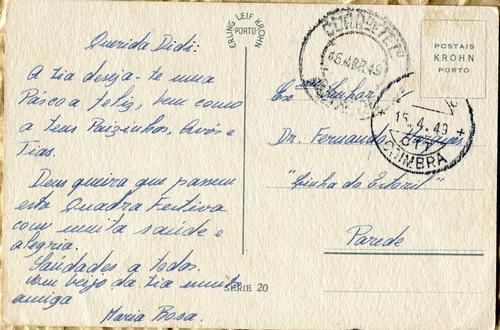 Querida Didi:
A tia deseja-te uma
Páscoa feliz, bem como
a teus Paizinhos, Avós e
Tias.
Deus queira que passem
esta Quadra Festiva
com muita saúde e
alegria.
Saúdades a todos.
Um beijo da tia muito
amiga
Maria Rosa.
ERLING LEIF KROHN
PORTO
SERIE 20
16.ABR.49
POSTAIS
KROHN
PORTO
15.4.49
COIMBRA
Exº Senhor
Dr. Fernando
"Linha do Estoril"
Parede